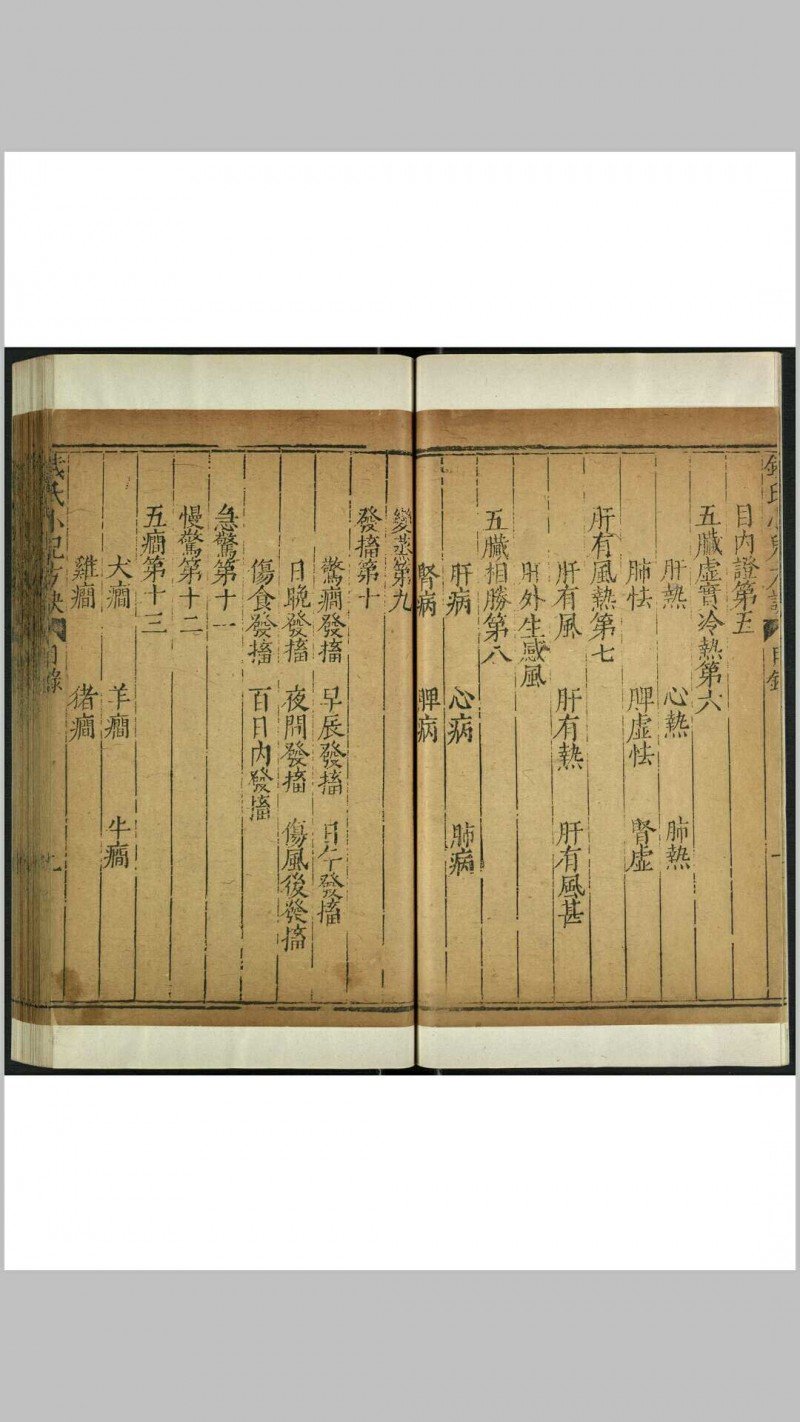 目內證第五
五臟虛實冷熱第六
肝熱 心熱 肺熱
肺怯 脾虛怯 腎虛
肝有風熱第七
肝有風 肝有熱 肝有風甚
肝外生感風
五臟相勝第八
肝病 心病 肺病
腎病 脾病
變蒸第九
發搐第十
驚癇發搐 早辰發搐 日午發搐
日晚發搐 夜間發搐 傷風後發搐
傷食發搐 百日內發搐
急驚第十一
慢驚第十二
五癇第十三
犬癇 羊癇 牛癇
雞癇 猪癇
錢氏小兒方訣 目錄